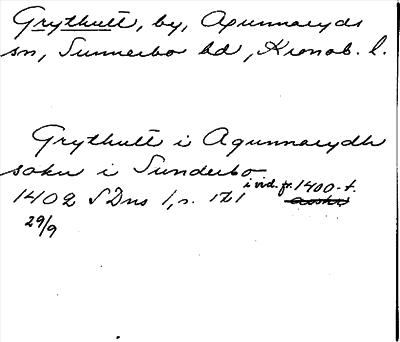 Grythult, by, Agunnaryds
sn, Sunnerbo hd, Kronob. l.
Grythult i Agunnarydh
sokn i Sunderbo
1402 SDns 1, s. 121 i vid. fr. 1400-t.
29/9